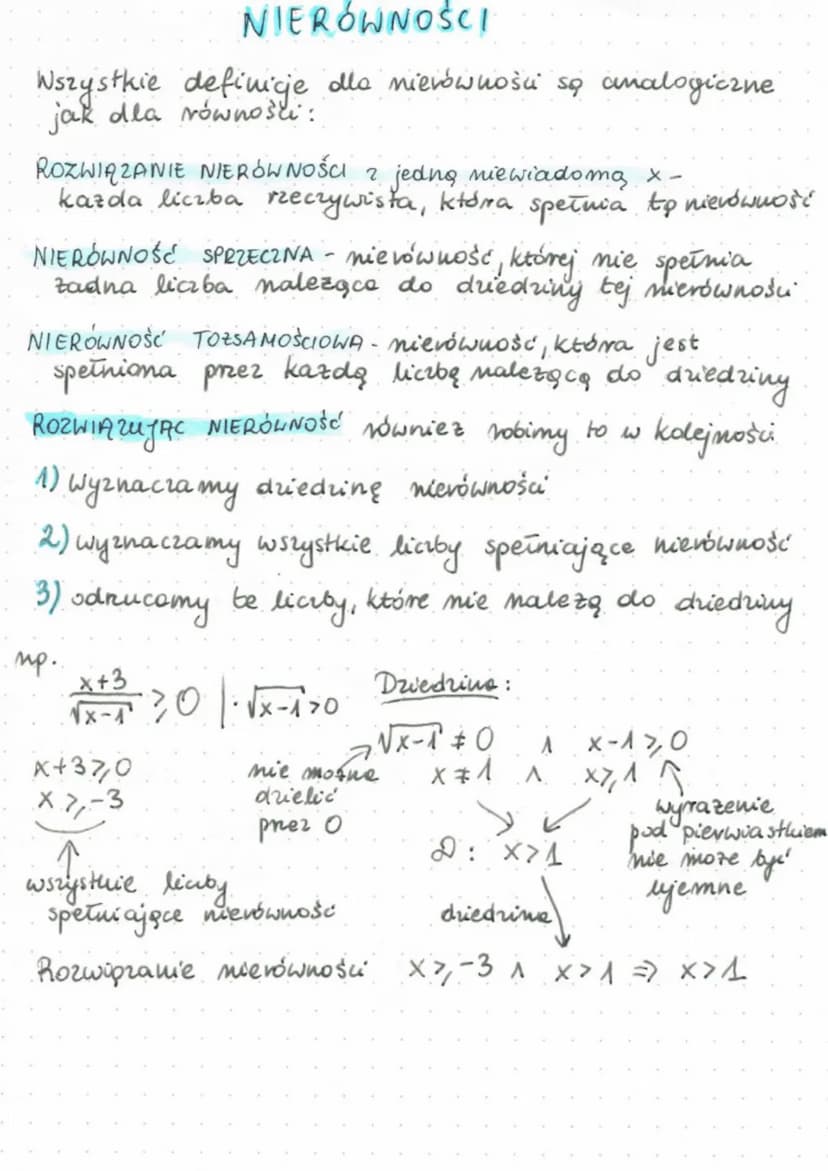 NIERÓWNOŚCI
Wszystkie definicje dla nierówności są analogiczne
jak dla równości:
ROZWIĄZANIE NIERÓWNOŚCI z jedną niewiadomą x -
każda liczba rzeczywista, która spełnia tę nierówność
NIERÓWNOŚĆ SPRZECZNA - nierówność, której nie spełnia
żadna liczba należąca do dziedziny tej nierówności
NIERÓWNOŚĆ TOŻSAMOŚCIOWA - nierówność, która jest
spełniona przez każdą liczbę należącą do dziedziny
ROZWIĄZUJĄC NIERÓWNOŚĆ również robimy to w kolejności
1) wyznaczamy dziedzinę nierówności
2) wyznaczamy wszystkie liczby spełniające nierówność
3) odrzucamy te liczby, które nie należą do dziedziny
np.
(x+3)/√(x-1) ⩾ 0 | · √(x-1) > 0
x+3 ⩾ 0
x ⩾ -3
wszystkie liczby
spełniające nierówność
nie można
dzielić
przez 0
Dziedzina:
√(x-1) ≠ 0 ∧ x-1 ⩾ 0
x ≠ 1 ∧ x ⩾ 1
D: x > 1
dziedzina
wyrażenie
pod pierwiastkiem
nie może być
ujemne
Rozwiązanie nierówności x ⩾ -3 ∧ x > 1 ⇒ x > 1